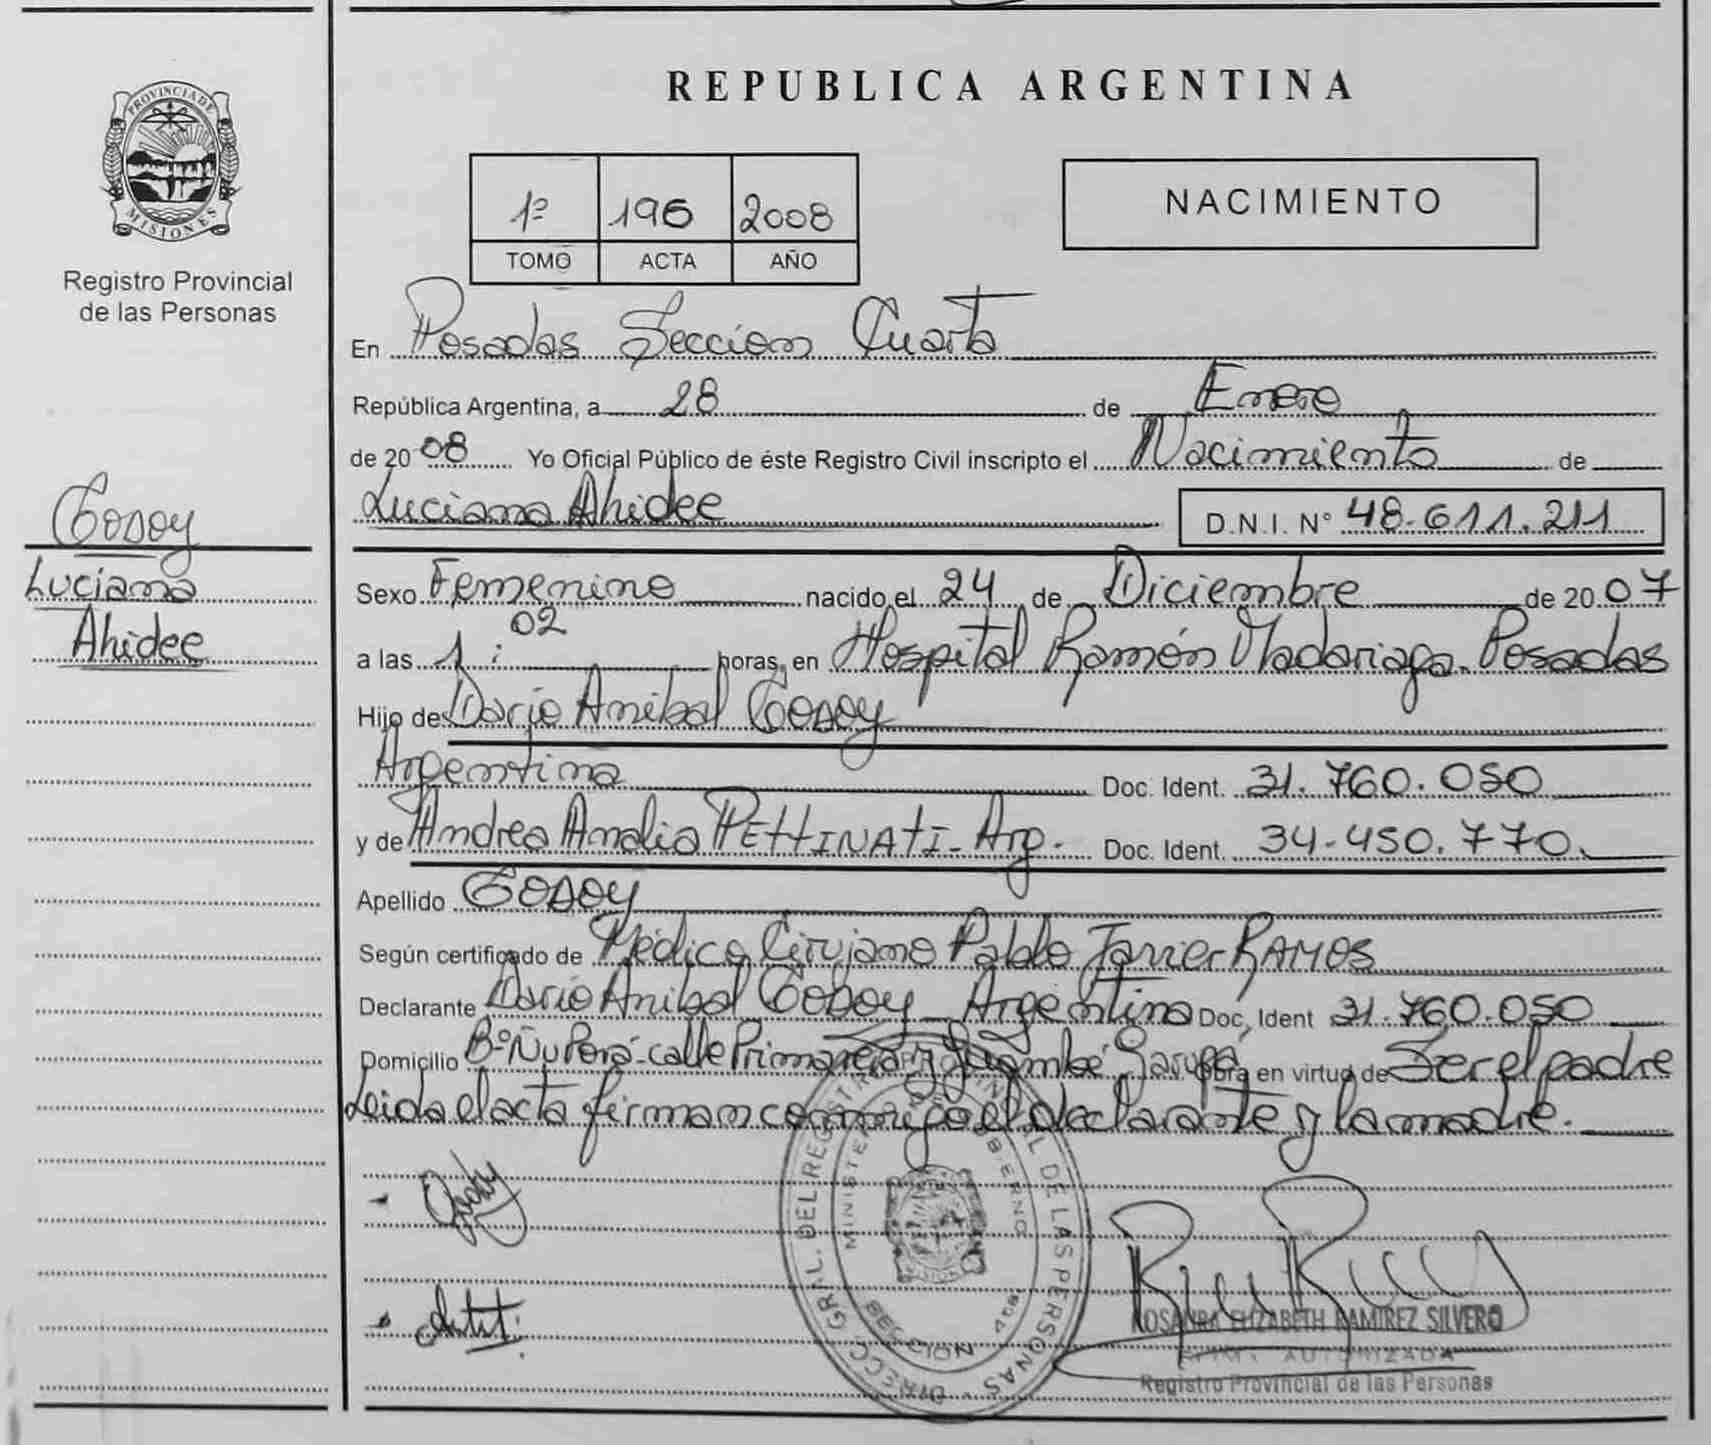 PROVINCIA DE
MISIONES
Registro Provincial
de las Personas
Godoy
Luciana
Ahidee
REPUBLICA ARGENTINA
1º 196 2008
TOMO ACTA AÑO
NACIMIENTO
En Posadas Seccion Cuarta
República Argentina, a 28 de Enero
de 20 08 Yo Oficial Público de éste Registro Civil inscripto el Nacimiento de
Luciana Ahidee D.N.I. Nº 48.611.211
Sexo Femenino nacido el 24 de Diciembre de 20 07
a las 1:02 horas, en Hospital Ramón Madariaga Posadas
Hijo de Darío Anibal Godoy
Argentina Doc. Ident. 31.760.050
y de Andrea Analia PETTINATI - Arg. Doc. Ident. 34.450.770
Apellido Godoy
Según certificado de Médico Cirujano Pablo Javier RAMOS
Declarante Dario Anibal Godoy Argentina Doc, Ident 31.760.050
Domicilio Bº Ñu Porá - calle Primavera y Garupá obra en virtud de Ser el padre
Leida el acta firman conmigo el declarante y la madre.
DIRECC. GRAL. DEL REGISTRO PROVINCIAL DE LAS PERSONAS
MINISTERIO GOBIERNO
SECCION 4ta.
ROSANNA ELIZABETH RAMIREZ SILVERO
FIRMA AUTORIZADA
Registro Provincial de las Personas